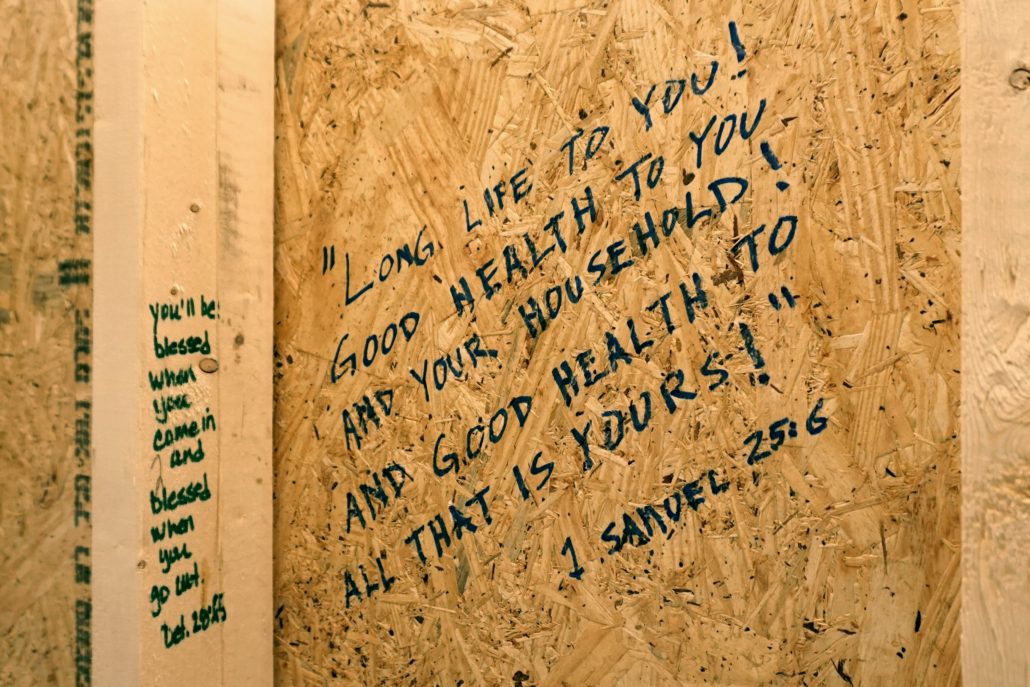 you'll be:
blessed
when
you
come in
and
blessed
when
you
go out.
"LONG LIFE TO YOU!
GOOD HEALTH TO YOU
AND YOUR HOUSEHOLD!
AND GOOD HEALTH TO
ALL THAT IS YOURS!"
1 SAMUEL, 25:6